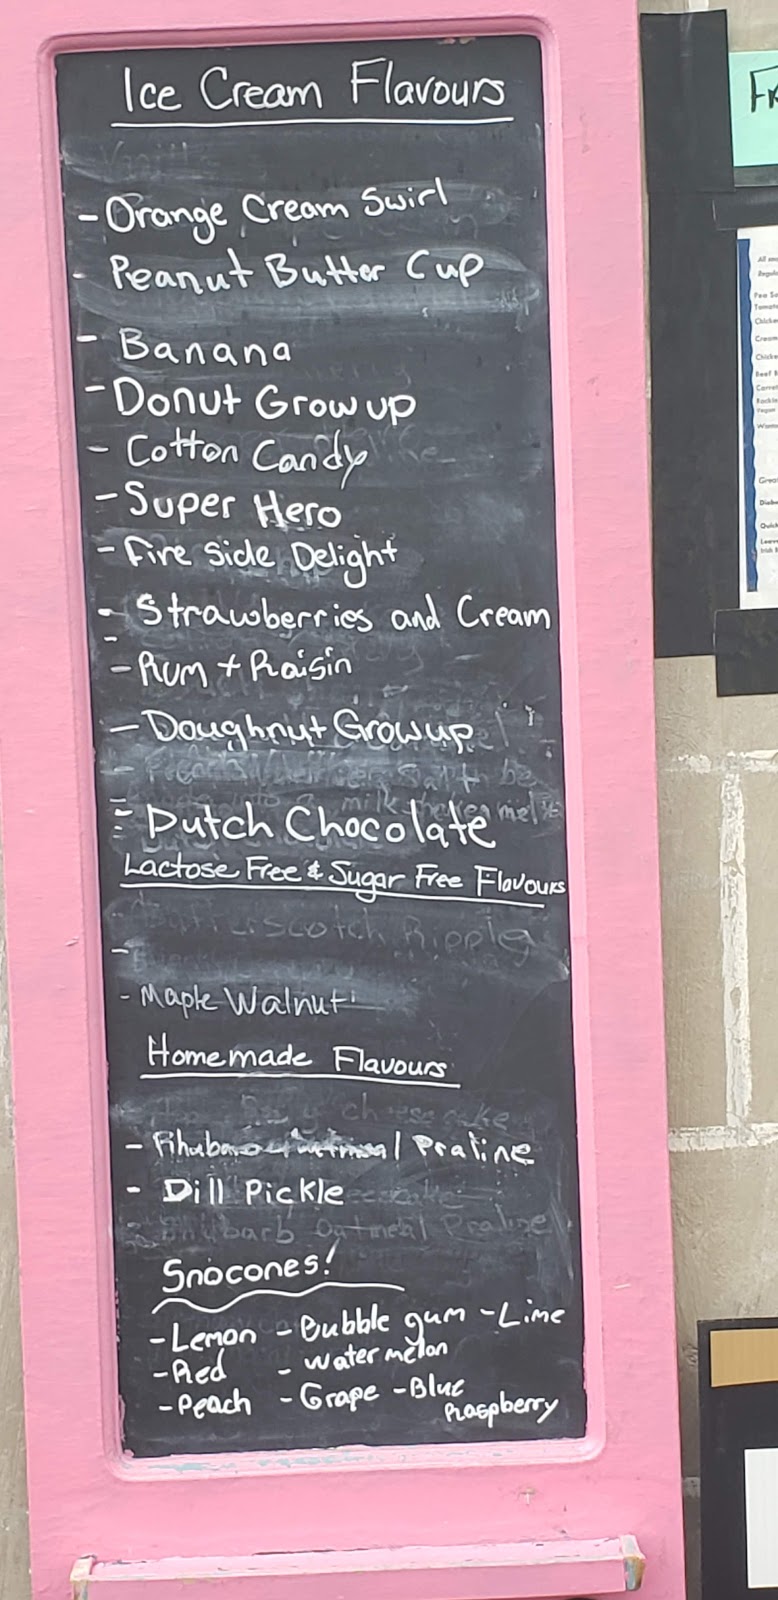 Ice Cream Flavours
- Orange Cream Swirl
- Peanut Butter Cup
- Banana
- Donut Grow up
- Cotton Candy
- Super Hero
- Fire Side Delight
- Strawberries and Cream
- Rum + Raisin
- Doughnut Grow up
- Dutch Chocolate
Lactose Free & Sugar Free Flavours
Butterscotch Ripple
- Maple Walnut
Homemade Flavours
- Rhubarb Oatmeal Praline
- Dill Pickle
Rhubarb Oatmeal Praline
Snocones!
- Lemon - Bubble gum - Lime
- Red - Water melon
- Peach - Grape - Blue
Raspberry